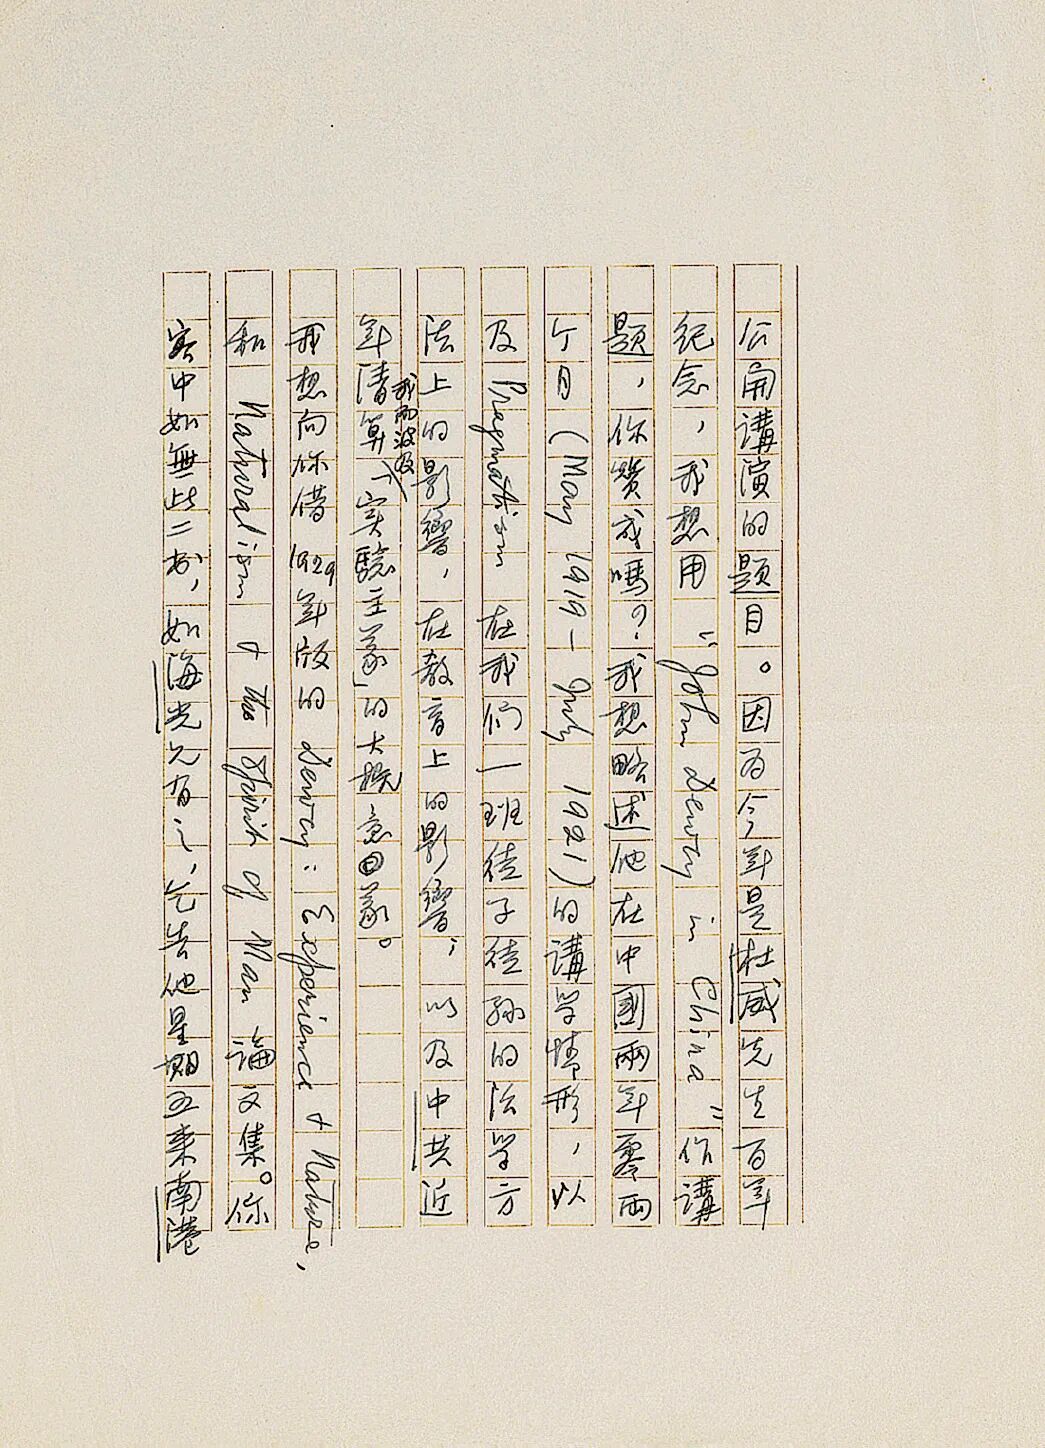 公開講演的題目。因为今年是杜威先生百年
紀念，我想用“John Dewey in China”作講
題，你贊成嗎？我想略述他在中國兩年零兩
个月（May 1919—July 1921）的講学情形，以
及 Pragmatism 在我們一班徒子徒孙的治学方
法上的影響，在教育上的影響；以及中共近
年清算我而波及「实驗主義」的大概意義。
我想向你借1929年版的 Dewey: Experience & Nature,
和 Naturalism & the Spirit of Man 論文集。你
寓中如無此二书，如海光兄有之，乞告他星期五来南港